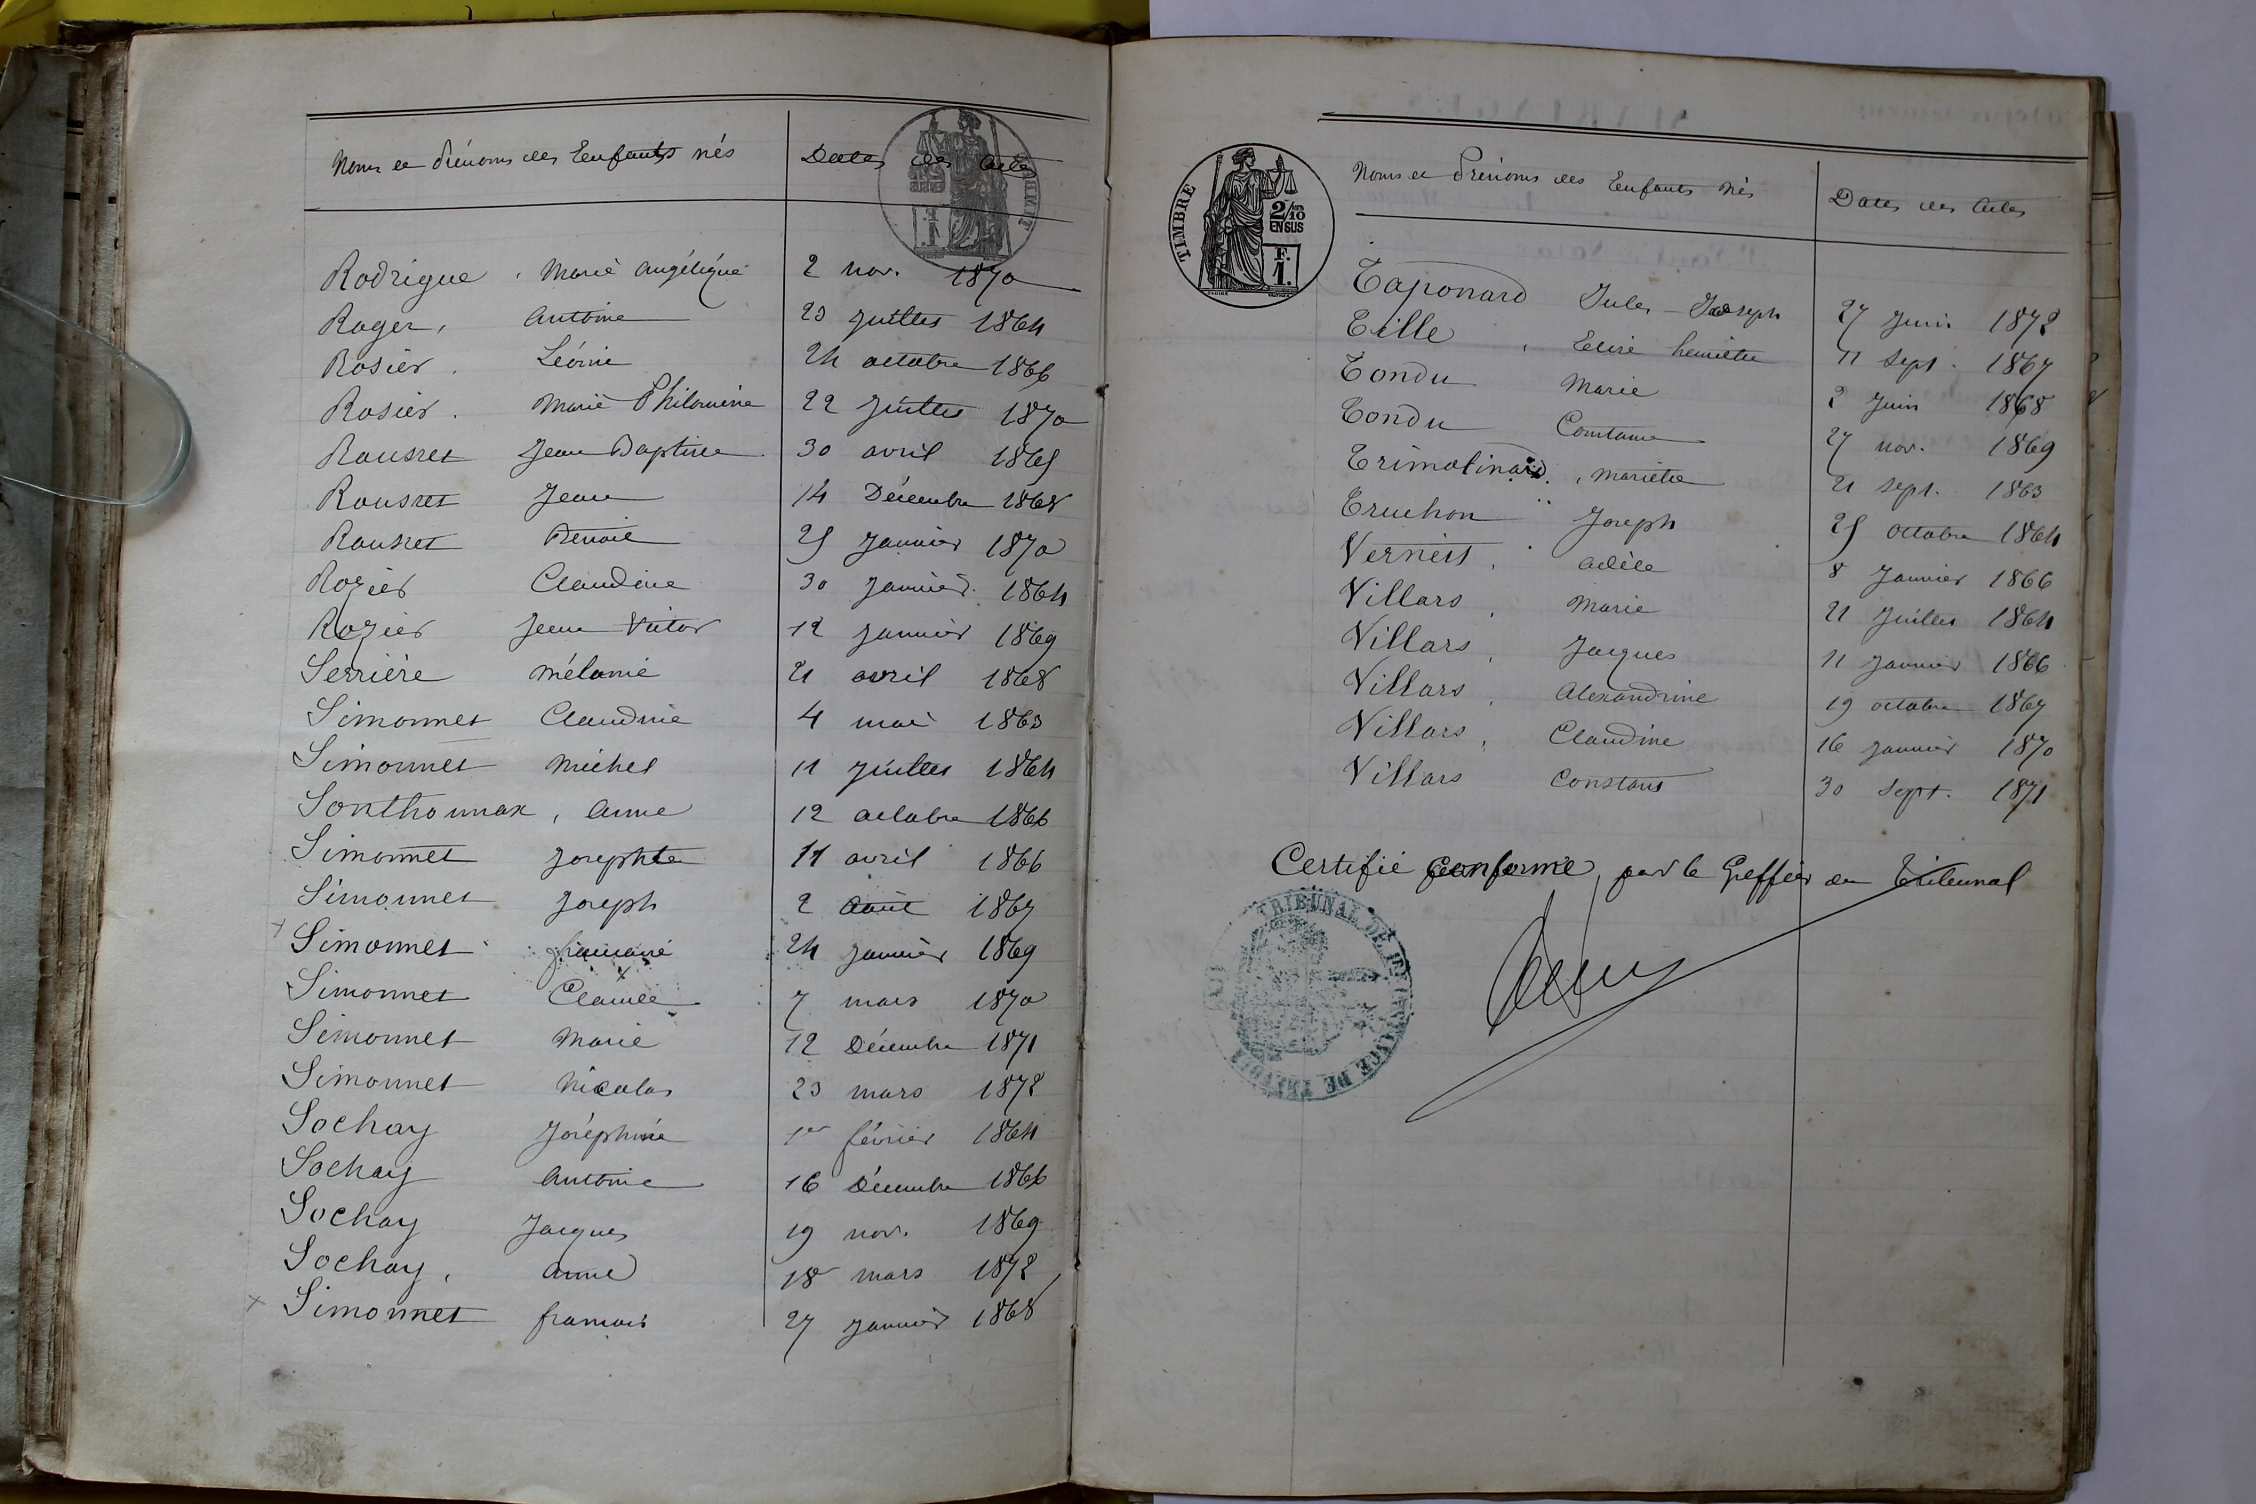 Noms et Prénoms des Enfants nés Dates des Actes
Rodrigue, Marie Angélique 2 nov. 1870
Roger, Antoine 23 Juillet 1864
Rosier. Léonie 24 octobre 1866
Rosier. Marie Philomène 22 Juillet 1870
Rousset Jean Baptiste 30 avril 1865
Rousset Jean 14 Décembre 1868
Rousset Benoit 25 Janvier 1870
Rozier Claudine 30 Janvier 1864
Rozier Jean Victor 12 Janvier 1869
Serrière Mélanie 21 avril 1868
Simonnet Claudine 4 mai 1863
Simonnet Michel 11 Juillet 1864
Sonthonnax, Anne 12 octobre 1866
Simonnet Josephte 11 avril 1866
Simonnet Joseph 2 Août 1867
Simonnet 24 Janvier 1869
Simonnet Claude 7 mars 1870
Simonnet Marie 12 Décembre 1871
Simonnet Nicolas 23 mars 1872
Sochay Joséphine 1er février 1864
Sochay Antoine 16 Décembre 1866
Sochay Jacques 19 nov. 1869
Sochay, Anne 18 mars 1872
Simonnet francois 27 Janvier 1868
TIMBRE
2/10
EN SUS
F.
1.
Noms et Prénoms des Enfants nés Dates des Actes
Taponard Jules-Joseph 27 Juin 1872
Tille, 11 Sept. 1867
Tondu Marie 2 Juin 1868
Tondu Constance 27 nov. 1869
Trimolinard, Mariette 21 Sept. 1863
Truchon Joseph 25 octobre 1864
Vernest, Adèle 8 Janvier 1866
Villars, Marie 21 Juillet 1864
Villars, Jacques 11 Janvier 1866
Villars, Alexandrine 19 octobre 1867
Villars, Claudine 16 Janvier 1870
Villars Constant 30 Sept. 1871
Certifié conforme, par le Greffier du Tribunal
TRIBUNAL DE 1ERE INSTANCE DE TREVOUX